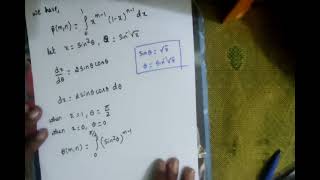 we have,
β(m,n) = ∫₀¹ x^{m-1} (1-x)^{n-1} dx
let x = sin²θ, θ = sin⁻¹√x
sinθ = √x
θ = sin⁻¹√x
dx/dθ = 2sinθcosθ
dx = 2sinθcosθ dθ
when x=1, θ = π/2
when x=0, θ=0
β(m,n) = ∫₀^{π/2} (sin²θ)^{m-1}